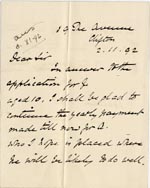 ans
19 The Avenue
Clifton
2.11.92
Dear Sir
In answer to the
application for J
aged 10, I shall be glad to
continue the yearly payment
made till now for
who I hope is placed where
he will be likely to do well.